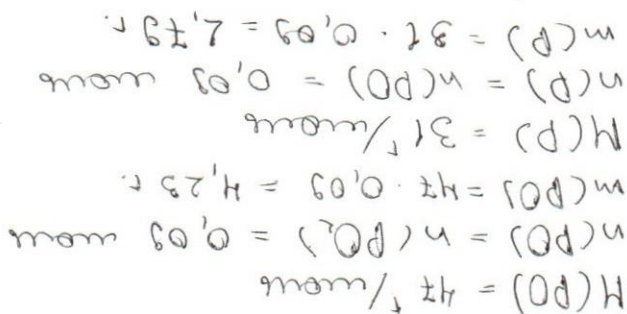 M(PO) = 47 г/моль
n(PO) = n(PO₂) = 0,09 моль
m(PO) = 47 · 0,09 = 4,23 г.
M(P) = 31 г/моль
n(P) = n(PO) = 0,09 моль
m(P) = 31 · 0,09 = 2,79 г.